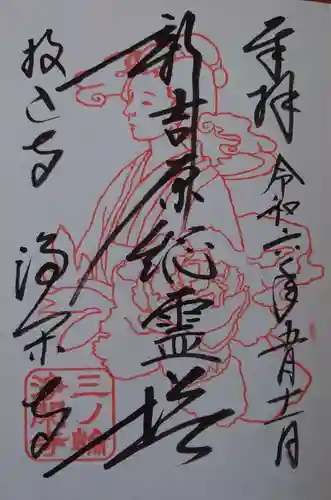 奉拝 令和六年五月十一日
新吉原総霊塔
投込寺 浄閑寺
三ノ輪
浄閑寺